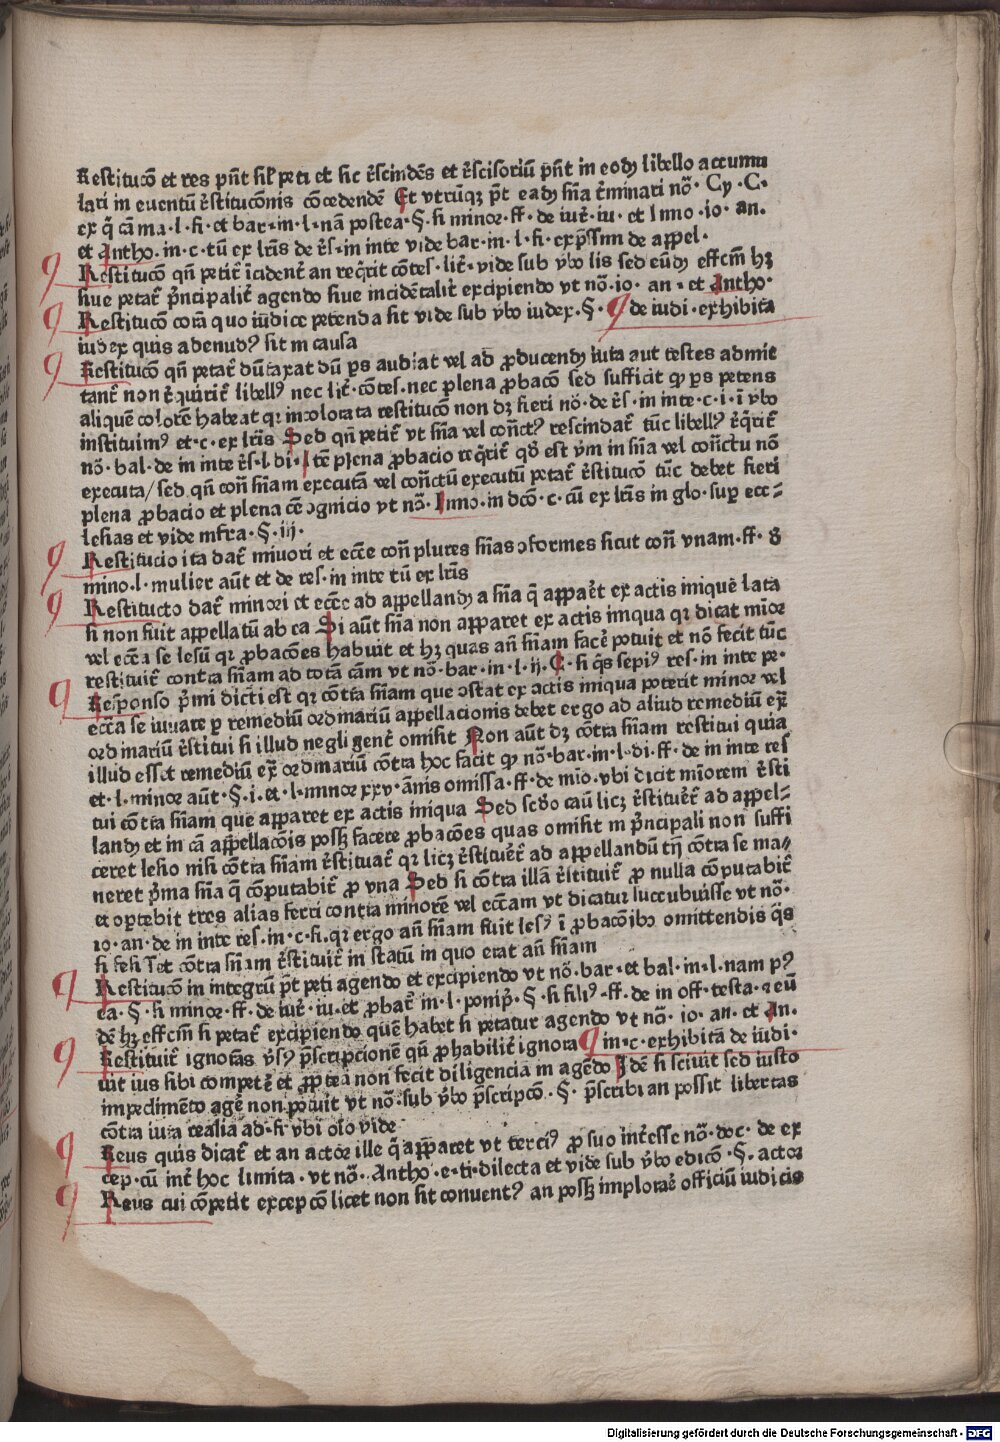 Restitucō et res pn̄t sil̄ peti et sic r̄scindēs et r̄scisoriū pn̄t in eodꝫ libello accumu
lari in euentū r̄stitucōnis cōcedende Et vtrūqꝫ pt̄ eadꝫ sn̄ia t̄minari nō· Cy·C·
ex q̄ cā ma·l·fi·et bar·in·l·nam postea·§·si minor·ff·de iur̄·iu·et Inno·io·an.
et Antho·in·c·tū ex lr̄is de r̄s·in inte vide bar·in·l·fi·exp̄ssim de appel·
Restitucō qn̄ petit̄ īcident̄ an req̄rit cōtes·lit̄·vide sub v̄bo lis sed eūdꝫ effcm̄ hꝫ
siue petat̄ p̄ncipalit̄ agendo siue incidētalit̄ excipiendo vt nō·io· an·et Antho·
Restitucō corā quo iudice petenda sit vide sub v̄bo iudex·§· de iudi·exhibita
iudex quis adenudꝰ sit in causa
Restitucō qn̄ petat̄ dūtaxat dū ps audiat vel ad ꝓducendꝫ iura aut testes admit
tant̄ non r̄quirit̄ libellꝰ nec lit̄·cōtes·nec plena ꝓbacō sed sufficit ꝙ ps petens
aliquē colorē habeat qꝛ incolorata restitucō non dꝫ fieri nō·de r̄s·in inte·c·i·ī v̄bo
instituimꝰ et·c·ex lr̄is Sed qn̄ petit̄ vt sn̄ia vel con̄ctꝰ rescindat̄ tūc libellꝰ r̄q̄rit̄
nō·bal·de in inte r̄s·l·di· Itē plena ꝓbacio req̄rit̄ qd̄ est ve̅m in sn̄ia vel con̄ctu nō
executa/sed qn̄ con̄ sn̄iam executā vel con̄ctū executū petat̄ r̄stitucō tūc debet fieri
plena ꝓbacio et plena cē ɔgnicio vt nō·Inno·in dcō·c·cū ex lr̄is in glo·sup̄ ecc⸗
lesias et vide infra·§·iij·
Restitucio ita dat̄ minori et ecc̄e con̄ plures sn̄ias ɔformes sicut con̄ vnam·ff·d̄
mino·l·mulier aūt et de res·in inte tū ex lr̄is
Restitucto dat̄ minori et ecc̄e ad appellandꝫ a sn̄ia q̄ appar̄et ex actis inique̅ lata
si non fuit appellatū ab ea Si aūt sn̄ia non apparet ex actis iniqua qꝛ dicat mīor
vel ecc̄ia se lesū qꝛ ꝓbacōes habuit et hꝫ quas an̄ sn̄iam facē potuit et nō fecit tūc
restituit̄ contra sn̄iam ad totā cām vt nō·bar·in·l·ij·C·si q̄s sepiꝰ res·in inte pe·
Responso p̄mi dicti est qꝛ cōtra sn̄iam que ɔstat ex actis iniqua poterit minor vel
ecc̄ia se iuuare ꝑ remediū ordinariū appellacionis debet ergo ad aliud remediū ex̄
ordinariū r̄stitui si illud negligent̄ omisit Non aūt dꝫ cōtra sn̄iam restitui quia
illud esset remediū ex̄ ordinariū cōtra hoc facit ꝙ nō·bar·in·l·di·ff·de in inte res
et·l·minor aūt·§·i·et·l·minor xxv·ānis omissa·ff·de mīo·vbi dicit mīorem r̄sti
tui cōtra sn̄iam que apparet ex actis iniqua Sed scd̄o caū licꝫ r̄stituer̄t ad appel⸗
landꝫ et in cā appellacōis possꝫ facere ꝓbacōes quas omisit in p̄ncipali non suffi
ceret lesio nisi cōtra sn̄iam r̄stituat̄ qꝛ licꝫ r̄stituer̄t ad appellandū tn̄ cōtra se ma⸗
neret p̄ma sn̄ia q̄ cōputabit̄ ꝓ vna Sed si cōtra illā r̄stituit̄ ꝓ nulla cōputabit̄
et oportebit tres alias ferri contra minorē vel ecc̄am vt dicatur succubuisse vt nō·
io·an·de in inte res·in·c·fi·qꝛ ergo an̄ sn̄iam fuit lesꝰ ī ꝓbacōibꝫ omittendis q̄s
si feciſſet cōtra sn̄iam r̄stituit̄ in statū in quo erat an̄ sn̄iam
Restitucō in integrū pt̄ peti agendo et excipiendo vt nō·bar·et bal·in·l·nam pꝰ
ea·§·si minor·ff·de iur̄·iu·et ꝓbat̄ in·l·pomp̄·§·si filiꝰ·ff·de in off·testa·⁊ eū
dē hꝫ effcm̄ si petat̄ excipiendo quē habet si petatur agendo vt nō·io·an·et An·
Restituit̄ ignorās v̄sꝰ p̄scripcionē qn̄ ꝓbabilit̄ ignora in·c·exhibitā de iudi·
uit ius sibi competē et ꝓpt̄ea non fecit diligenciā in agēdo Idē si sciuit sed iusto
impedimēto agē non potuit vt nō·sub v̄bo p̄scripcō·§·p̄scribi an possit libertas
cōtra iura realia ad·fi vbi oīo vide
Reus quis dicat̄ et an actor ille q̄ apparet vt terciꝰ ꝓ suo int̄esse nō·doc·de ex
cep·cū int̄ hoc limita·vt nō·Antho·e·ti·dilecta et vide sub v̄bo edicō·§·actor
Reus cui cōpetit excepcō licet non sit conuentꝰ an possꝫ implorar̄ officiū iudicis
Digitalisierung gefördert durch die Deutsche Forschungsgemeinschaft · DFG